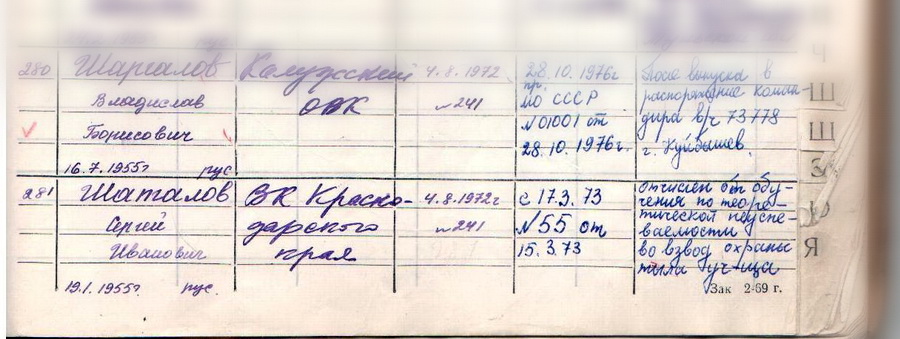 280 Шаргалов Калужский 4.8.1972 28.10.1976г После выпуска в
Владислав ОВК №241 пр. МО СССР распоряжение коман-
Борисович №01001 от дира в/ч 73778
16.7.1955г рус 28.10.1976г. г. Куйбышев.
281 Шаталов ВК Красно- 4.8.1972г с 17.3.73 отчислен от обу-
Сергей дарского №241 №55 от чения по теоре-
Иванович края 15.3.73 тической неуспе-
ваемости
во взвод охраны
19.1.1955г. рус. тыла уч-ща
Зак 2-69 г.
Ш
Ш
Я